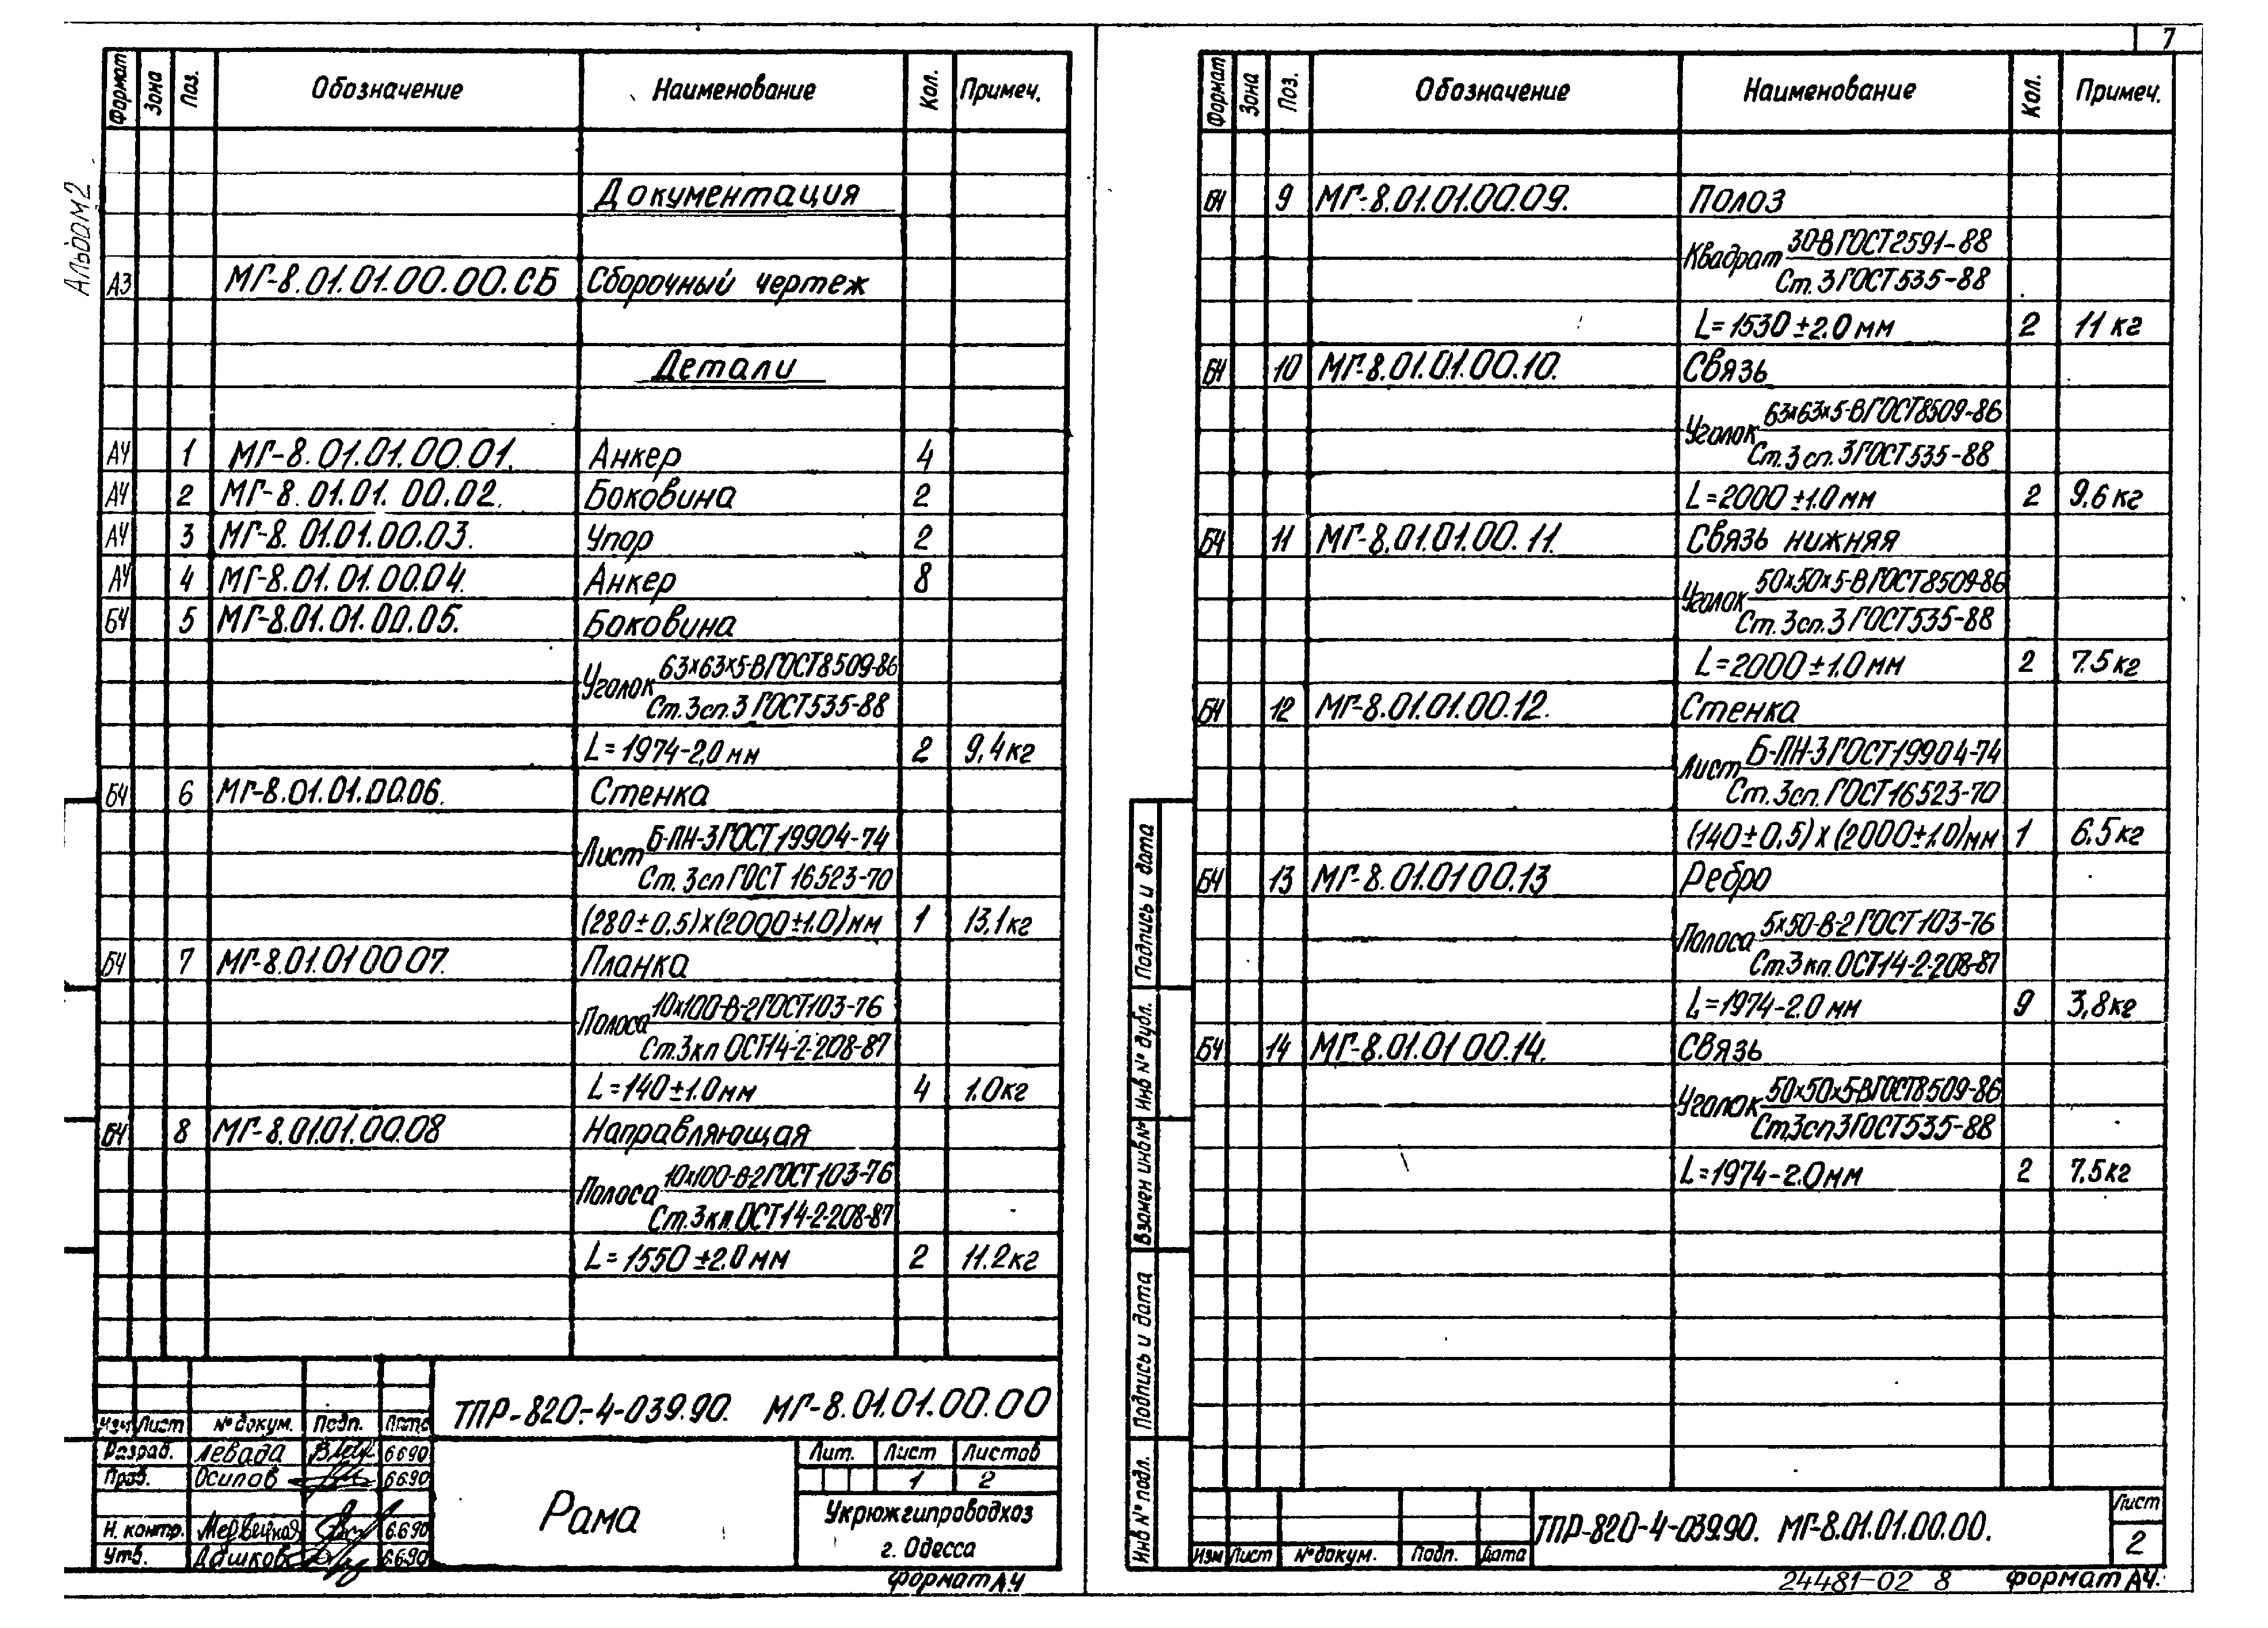 Альбом 2
Формат Зона Поз. Обозначение Наименование Кол. Примеч.
Документация
А3 МГ-8.01.01.00.00.СБ Сборочный чертеж
Детали
А4 1 МГ-8.01.01.00.01. Анкер 4
А4 2 МГ-8.01.01.00.02. Боковина 2
А4 3 МГ-8.01.01.00.03. Упор 2
А4 4 МГ-8.01.01.00.04. Анкер 8
БЧ 5 МГ-8.01.01.00.05. Боковина
Уголок 63х63х5-В ГОСТ 8509-86
Ст.3сп.3 ГОСТ 535-88
L=1974-2,0 мм 2 9,4кг
БЧ 6 МГ-8.01.01.00.06. Стенка
Лист Б-ПН-3 ГОСТ 19904-74
Ст.3сп ГОСТ 16523-70
(280±0,5)х(2000±1.0)мм 1 13,1кг
БЧ 7 МГ-8.01.01 00 07. Планка
Полоса 10х100-В-2 ГОСТ 103-76
Ст.3кп ОСТ 14-2-208-87
L=140±1.0мм 4 1.0кг
БЧ 8 МГ-8.01.01.00.08 Направляющая
Полоса 10х100-В-2 ГОСТ 103-76
Ст.3кп. ОСТ 14-2-208-87
L=1550±2.0 мм 2 11.2кг
ТПР-820-4-039.90. МГ-8.01.01.00.00
Изм Лист № докум. Подп. Дата
Разраб. Левада 6690
Пров. Осипов 6.6.90
Н. контр. Медвецкая 6.6.90
Утв. Дашков 6.6.90
Рама
Лит. Лист Листов
1 2
Укрюжгипроводхоз
г. Одесса
Формат А4
7
Формат Зона Поз. Обозначение Наименование Кол. Примеч.
БЧ 9 МГ-8.01.01.00.09. Полоз
Квадрат 30-В ГОСТ 2591-88
Ст.3 ГОСТ 535-88
L=1530±2.0 мм 2 11 кг
БЧ 10 МГ-8.01.01.00.10. Связь
Уголок 63х63х5-В ГОСТ 8509-86
Ст.3сп.3 ГОСТ 535-88
L=2000±1.0мм 2 9.6 кг
БЧ 11 МГ-8.01.01.00.11. Связь нижняя
Уголок 50х50х5-В ГОСТ 8509-86
Ст.3сп.3 ГОСТ 535-88
L=2000±1.0мм 2 7.5 кг
БЧ 12 МГ-8.01.01.00.12. Стенка
Лист Б-ПН-3 ГОСТ 19904-74
Ст.3сп. ГОСТ 16523-70
(140±0,5)х(2000±1.0)мм 1 6.5кг
БЧ 13 МГ-8.01.01 00.13 Ребро
Полоса 5х50-В-2 ГОСТ 103-76
Ст.3кп. ОСТ 14-2-208-87
L=1974-2.0 мм 9 3,8кг
БЧ 14 МГ-8.01.01 00.14. Связь
Уголок 50х50х5-В ГОСТ 8509-86
Ст.3сп3 ГОСТ 535-88
L=1974-2.0мм 2 7.5кг
Подпись и дата
Инв № дубл.
Взамен инв №
Подпись и дата
Инв № подл.
Изм Лист № докум. Подп. Дата
ТПР-820-4-039.90. МГ-8.01.01.00.00.
Лист
2
24481-02 8 Формат А4.